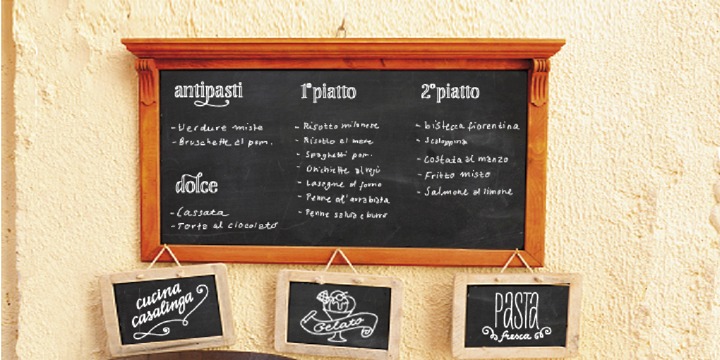 antipasti
- Verdure miste
- Bruschette al pom.
dolce
- Cassata
- Torte al ciocolato
1° piatto
- Risotto milanese
- Risotto al mare
- Spaghetti pom.
- Orichiette al ragù
- Lasagne al forno
- Penne all'arrabiata
- Penne salvia e burro
2° piatto
- bistecca fiorentina
- Scaloppina
- Costata di manzo
- Fritto misto
- Salmone al limone
cucina
casalinga
Gelato
PASTA
fresca